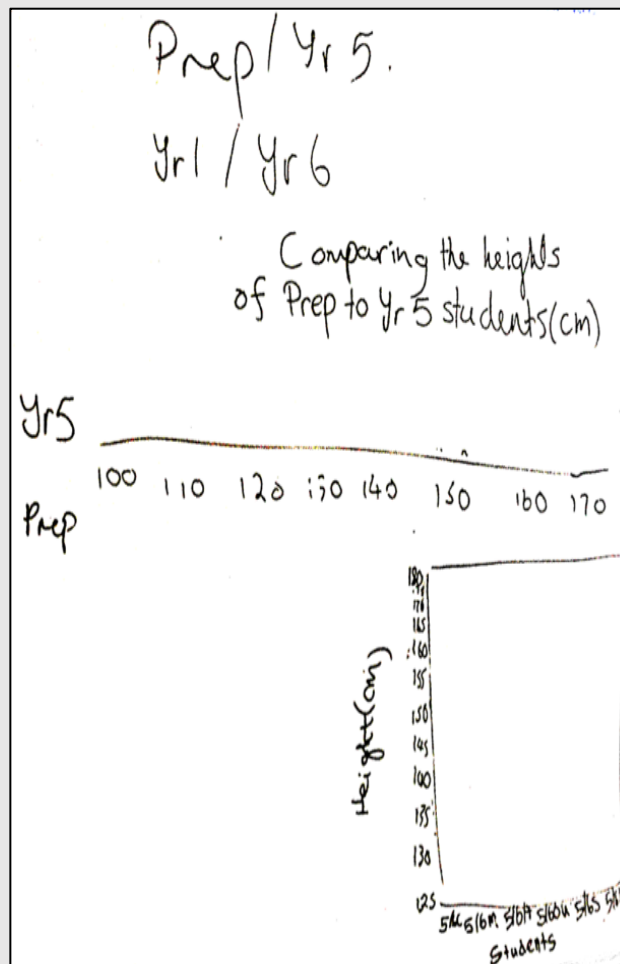 Prep / Yr 5.
Yr1 / Yr 6
Comparing the heights
of Prep to Yr 5 students (cm)
Yr5
100 110 120 130 140 150 160 170
Prep
180
170
165
160
155
150
145
140
135
130
125
Height (cm)
5/6M 5/6A 5/6S
Students